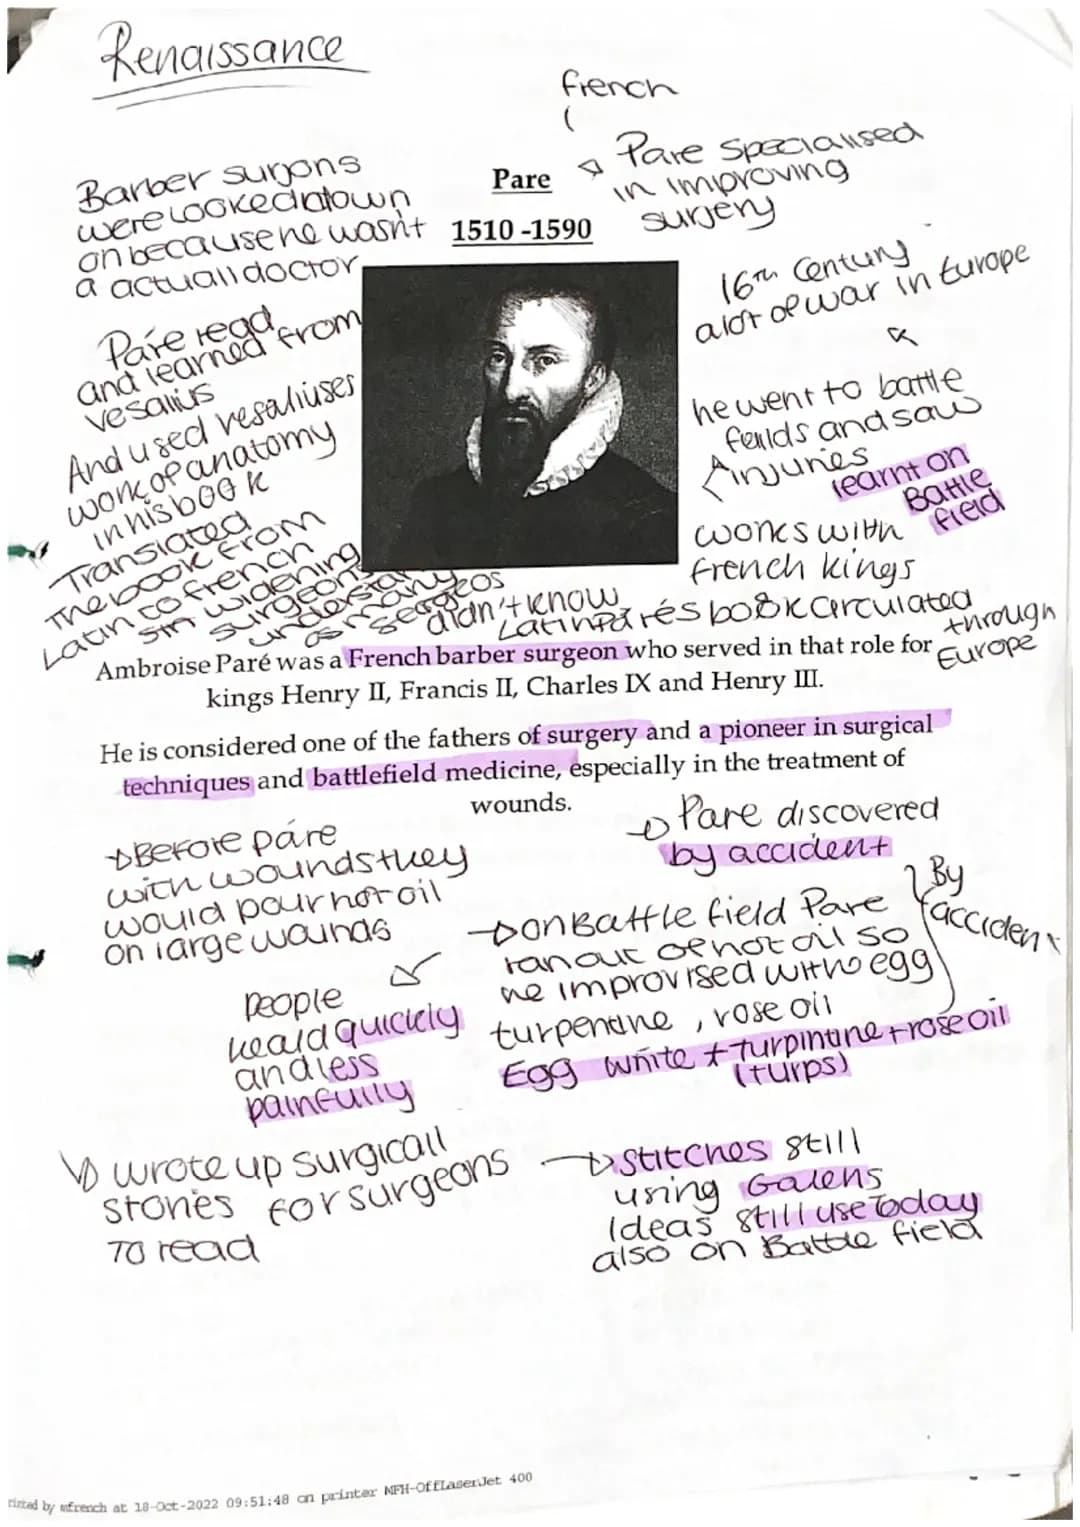 Renaissance
french
Barber surgons
were looked down
on because he wasn't
a actuall doctor
Pare
1510 -1590
Pare specialised
in improving
surgery
16th Century
alot of war in Europe
he went to battle
feilds and saw
injuries
learnt on
Battle
field
works with
french kings
Pare read
and learned from
vesalius
And used vesaliuses
work of anatomy
in his book
Translated
The book from
Latin to french
in widening
surgeons
understan
as many
seageos
didn't know
Latin
Parés book circulated
through
Europe
Ambroise Paré was a French barber surgeon who served in that role for
kings Henry II, Francis II, Charles IX and Henry III.
He is considered one of the fathers of surgery and a pioneer in surgical
techniques and battlefield medicine, especially in the treatment of
wounds.
Before páre
with wounds they
would pour hot oil
on large wounds
people
heald quickly
and less
painfully
Pare discovered
by accident
on Battle field Pare
ran out of hot oil so
he improvised with egg
turpentine, rose oil
By
accident
Egg white + turpintine + rose oil
(turps)
wrote up surgicall
stories for surgeons
To read
Stitches still
using Galens
Ideas still use Today
also on Battle field
rinted by mfrench at 18-Oct-2022 09:51:48 on printer MFH-OffLaserJet 400